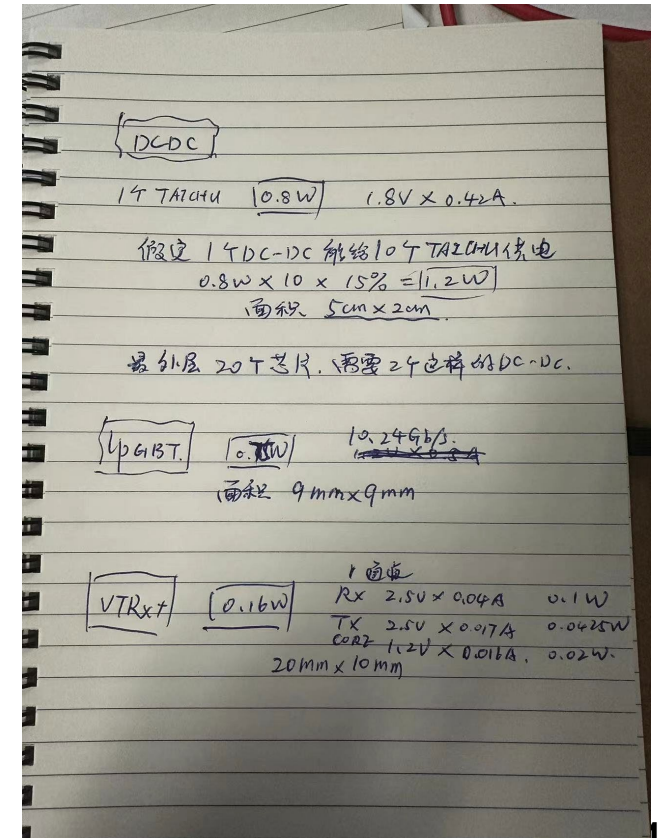 DCDC
1个 TAICHU 0.8W 1.8V × 0.42A.
假定 1个DC-DC 能给10个 TAICHU供电
0.8W × 10 × 15% = 1.2W
面积 5cm × 2cm.
最外层 20个芯片, 需要2个这样的DC-DC.
lpGBT. 0.75W 10.24Gb/s.
面积 9mm×9mm
1 通道
VTRx+ 0.16W RX 2.5V × 0.04A 0.1W
TX 2.5V × 0.017A 0.0425W
CORE 1.2V × 0.016A. 0.02W.
20mm × 10mm